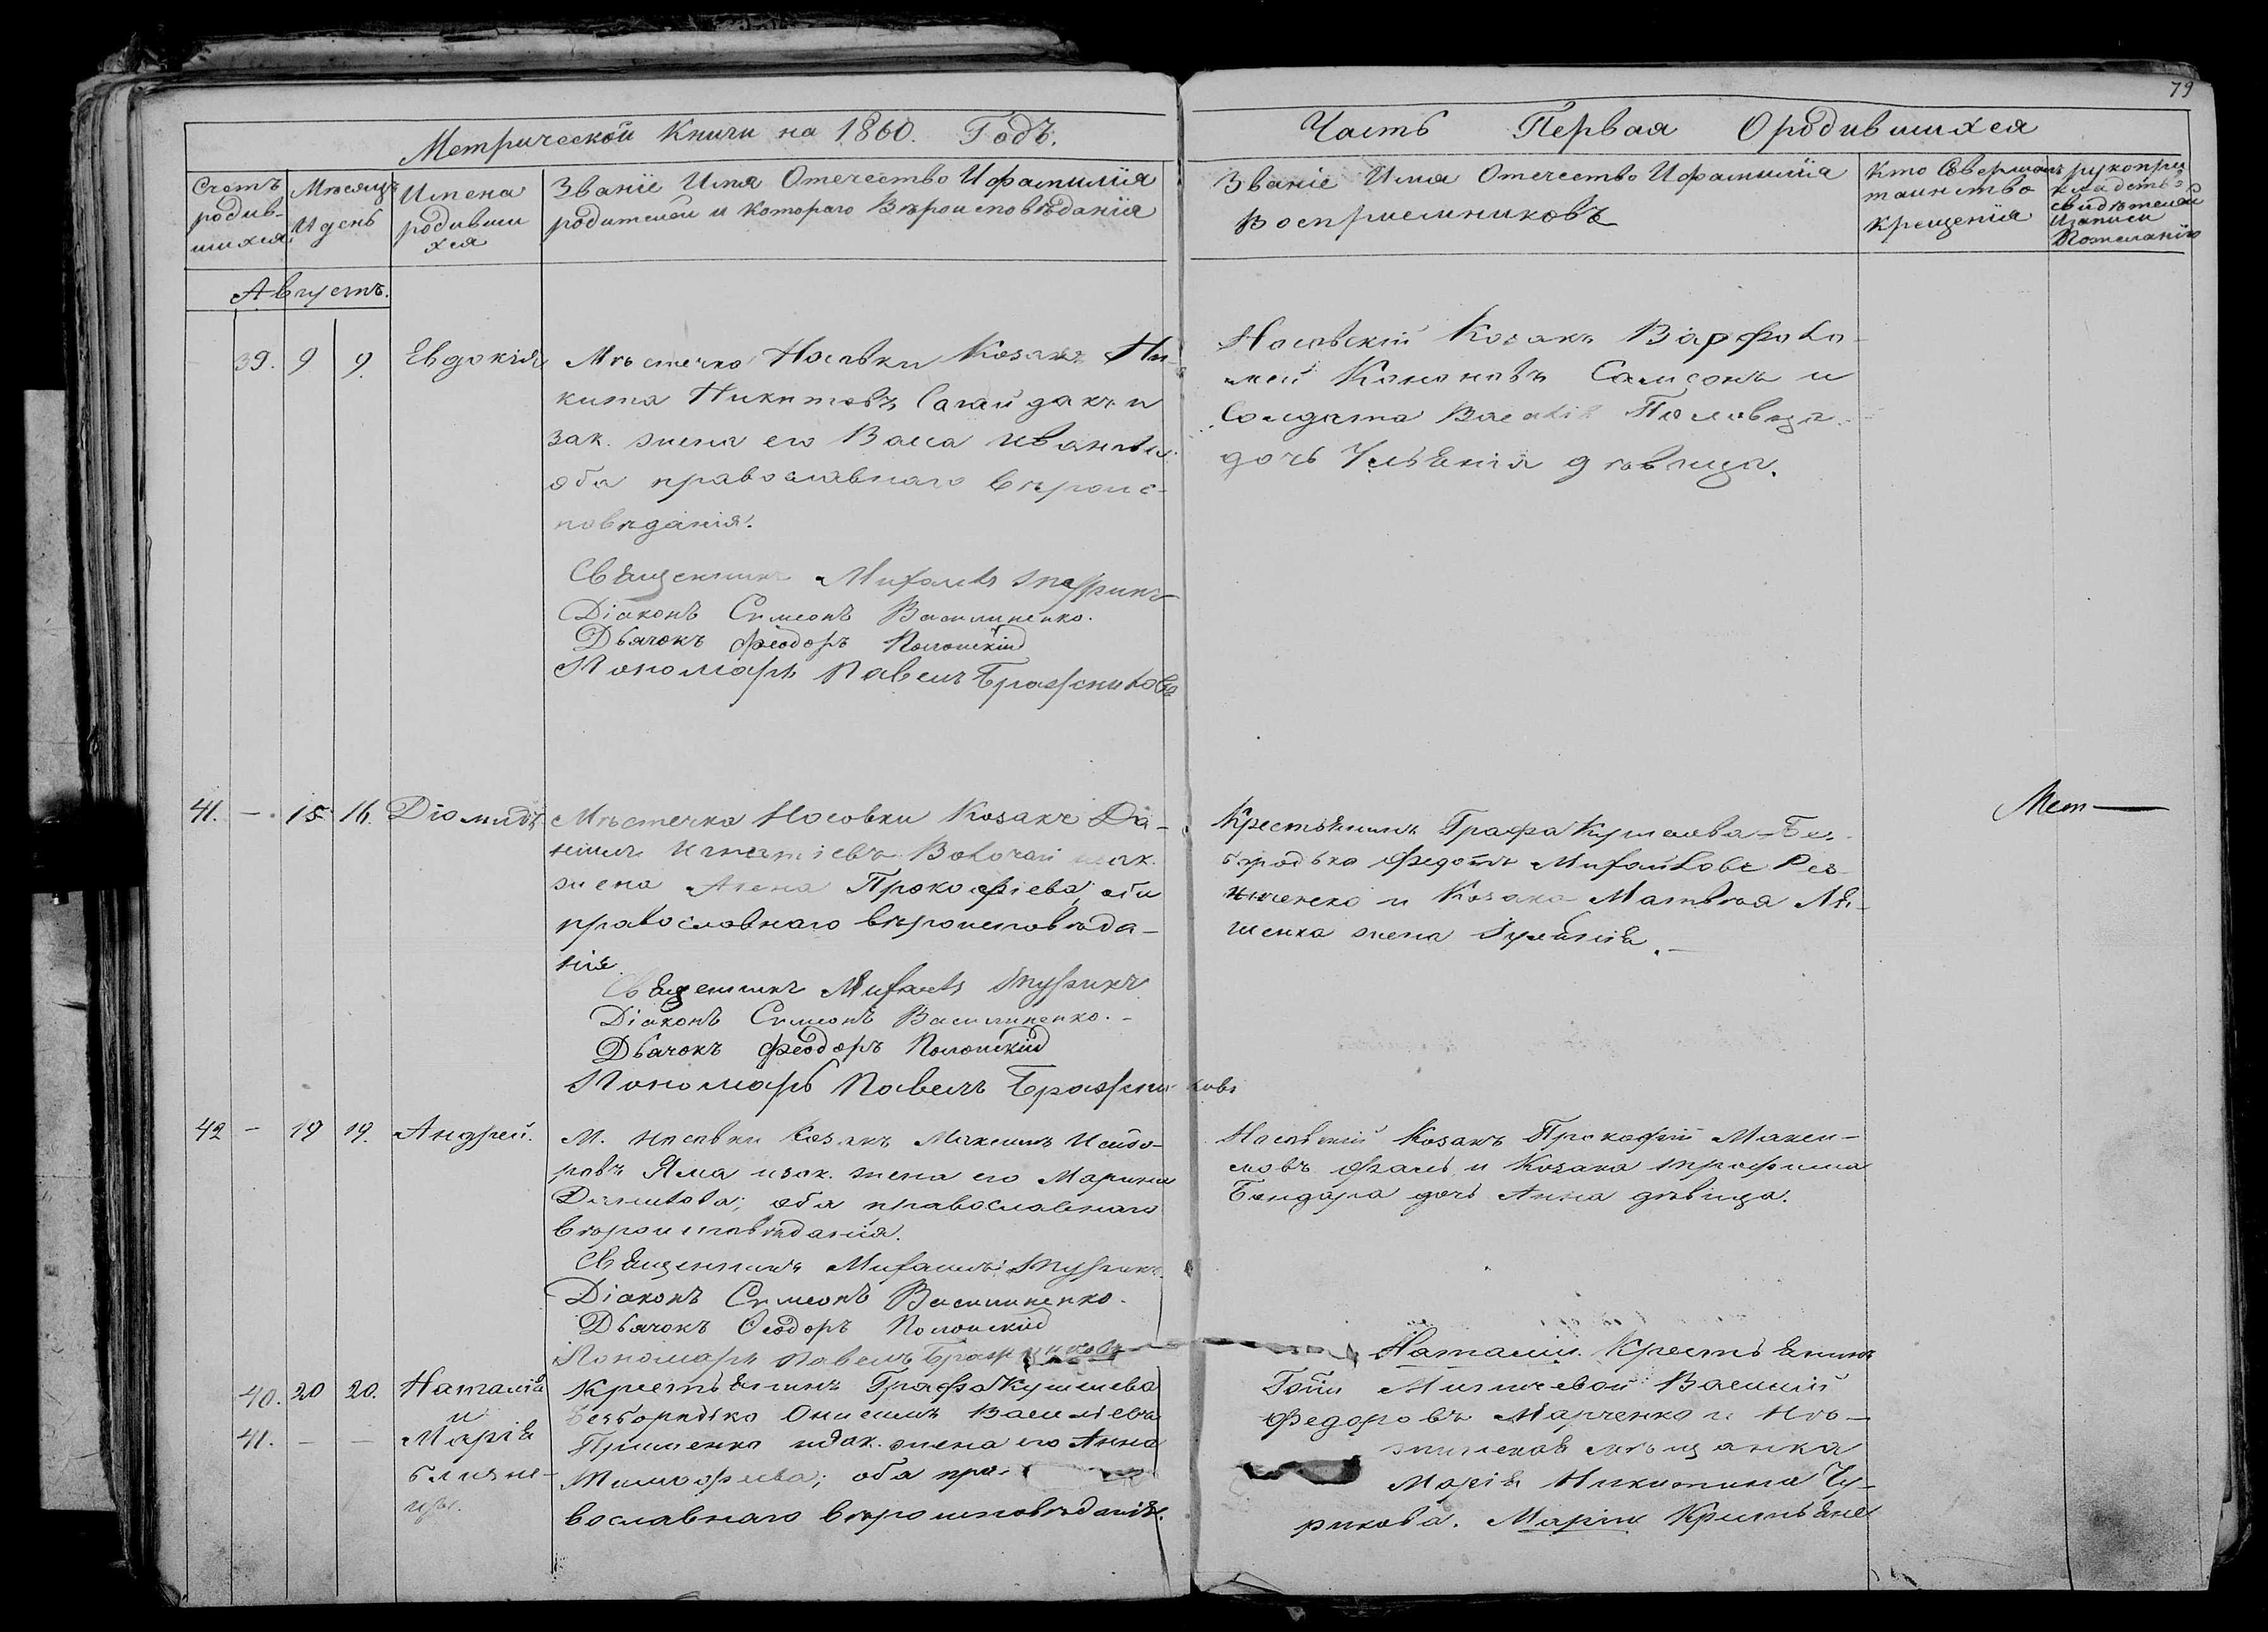 79
Метрической Книги на 1860. Годъ.
Часть Первая О родившихся
Счетъ родив-шихся
Мѣсяцъ И день
Имена родивши хся
Званїе Имя Отечество И фамилїя
родителей и котораго Вѣроисповѣданїя
Званїе Имя Отечество И фамилїя
Восприемниковъ
Кто Совершалъ таинство Крещенїя
рукопри свидѣтелей записи Пожеланїю
Августъ.
39. 9 9. Евдокія
Мѣстечка Носовки Козакъ Ни-
кита Никитовъ Сагайдакъ и
зак. жена его Васса Иванова
оба православнаго вѣроис-
повѣданія.
Священникъ Михаилъ
Діаконъ Симеонъ Василиненко.
Дьячокъ Феодоръ Полонскій
Пономарь Павелъ Бражниковъ
Носовскій Козакъ Варфоло-
мей Кононовъ Самсонъ и
Солдата Василія Половца
дочь Ульянія дѣвица.
41. — 15 16. Діомидъ
Мѣстечка Носовки Козакъ Да-
ніилъ Игнатіевъ Волочай и зак.
жена Агена Прокофіева; оба
православнаго вѣроисповѣда-
нія.
Священникъ Михаилъ
Діаконъ Симеонъ Василиненко.-
Дьячокъ Феодоръ Полонскій
Пономарь Павелъ Бражниковъ
Крестьянинъ Графа Кушелева-Без-
бородько Федотъ Михайловъ
и Козака Матвѣя Ля-
шенка жена
Мет—
42 — 19 19. Андрей.
М. Носовки Козакъ Максимъ Исидо-
ровъ Яма и зак. жена его Марина
Данилова; оба православнаго
вѣроисповѣданія.
Священникъ Михаилъ
Діаконъ Симеонъ Василиненко.
Дьячокъ Ѳеодоръ Полонскій
Пономарь Павелъ Бражниковъ
Носовскій Козакъ Прокофій Макси-
мовъ и Козака Трофима
Бондара дочь Анна дѣвица.
40. 20 20. Наталія
41. — — и Марія близне-цы.
Крестьянинъ Графа Кушелева
Безбородько Онисимъ Васильевъ
и зак. жена его Анна
Тимофеева; оба пра-
вославнаго вѣроисповѣданія.
Наталіи Крестьянинъ
Милорадовой Василій
Федоровъ Марченко и Нѣ-
жинская мѣщанка
Марія Никитина Чу-
рикова. Маріи Крестьяне